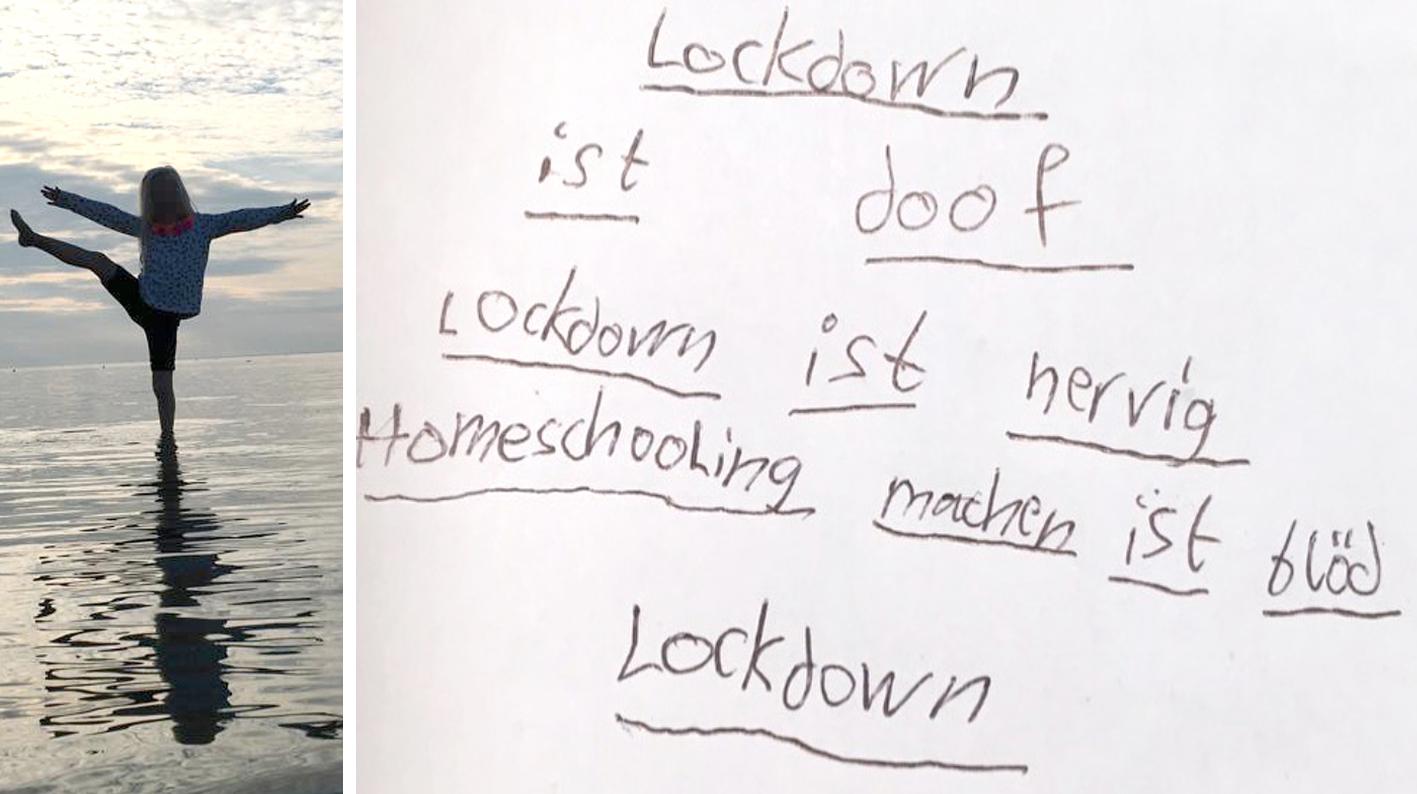 Lockdown
ist doof
Lockdown ist nervig
Homeschooling machen ist blöd
Lockdown